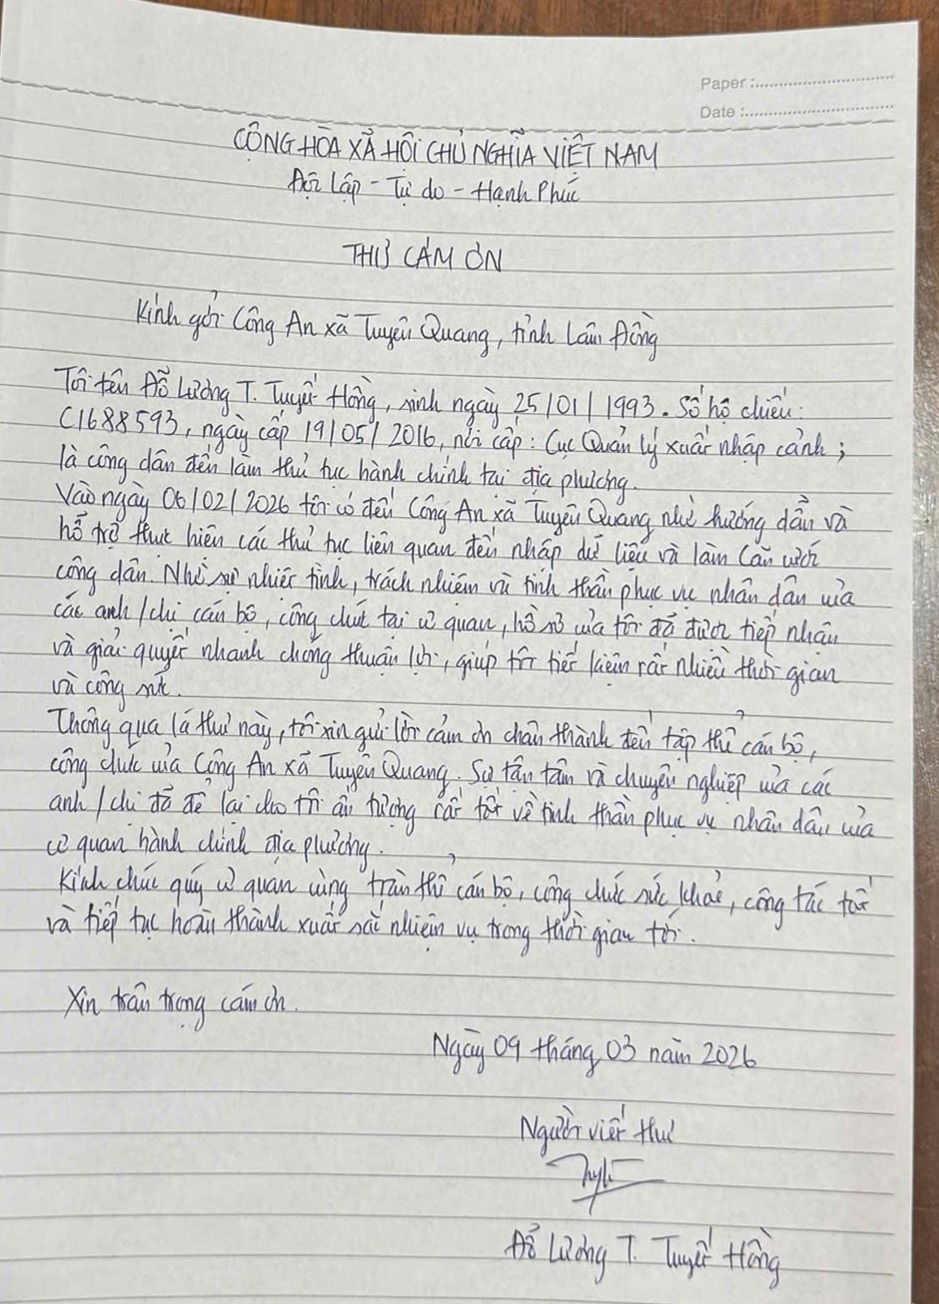 Paper :
Date :
CỘNG HÒA XÃ HỘI CHỦ NGHĨA VIỆT NAM
Độc Lập - Tự do - Hạnh Phúc
THƯ CẢM ƠN
Kính gởi Công An xã Tuyên Quang, tỉnh Lâm Đồng
Tôi tên Đỗ Lương T. Tuyết Hồng, sinh ngày 25/01/1993. Số hộ chiếu:
C1688593, ngày cấp 19/05/2016, nơi cấp: Cục Quản lý xuất nhập cảnh;
là công dân đến làm thủ tục hành chính tại địa phương.
Vào ngày 06/02/2026 tôi có đến Công An xã Tuyên Quang nhờ hướng dẫn và
hỗ trợ thực hiện các thủ tục liên quan đến nhập dữ liệu và làm Căn cước
công dân. Nhờ sự nhiệt tình, trách nhiệm và tinh thần phục vụ nhân dân của
các anh/chị cán bộ, công chức tại cơ quan, hồ sơ của tôi đã được tiếp nhận
và giải quyết nhanh chóng thuận lợi, giúp tôi tiết kiệm rất nhiều thời gian
và công sức.
Thông qua lá thư này, tôi xin gửi lời cảm ơn chân thành đến tập thể cán bộ,
công chức của Công An xã Tuyên Quang. Sự tận tâm và chuyên nghiệp của các
anh/chị đã để lại cho tôi ấn tượng rất tốt về tinh thần phục vụ nhân dân của
cơ quan hành chính địa phương.
Kính chúc quý cơ quan cùng toàn thể cán bộ, công chức sức khoẻ, công tác tốt
và tiếp tục hoàn thành xuất sắc nhiệm vụ trong thời gian tới.
Xin trân trọng cám ơn.
Ngày 09 tháng 03 năm 2026
Người viết thư
Đỗ Lương T. Tuyết Hồng